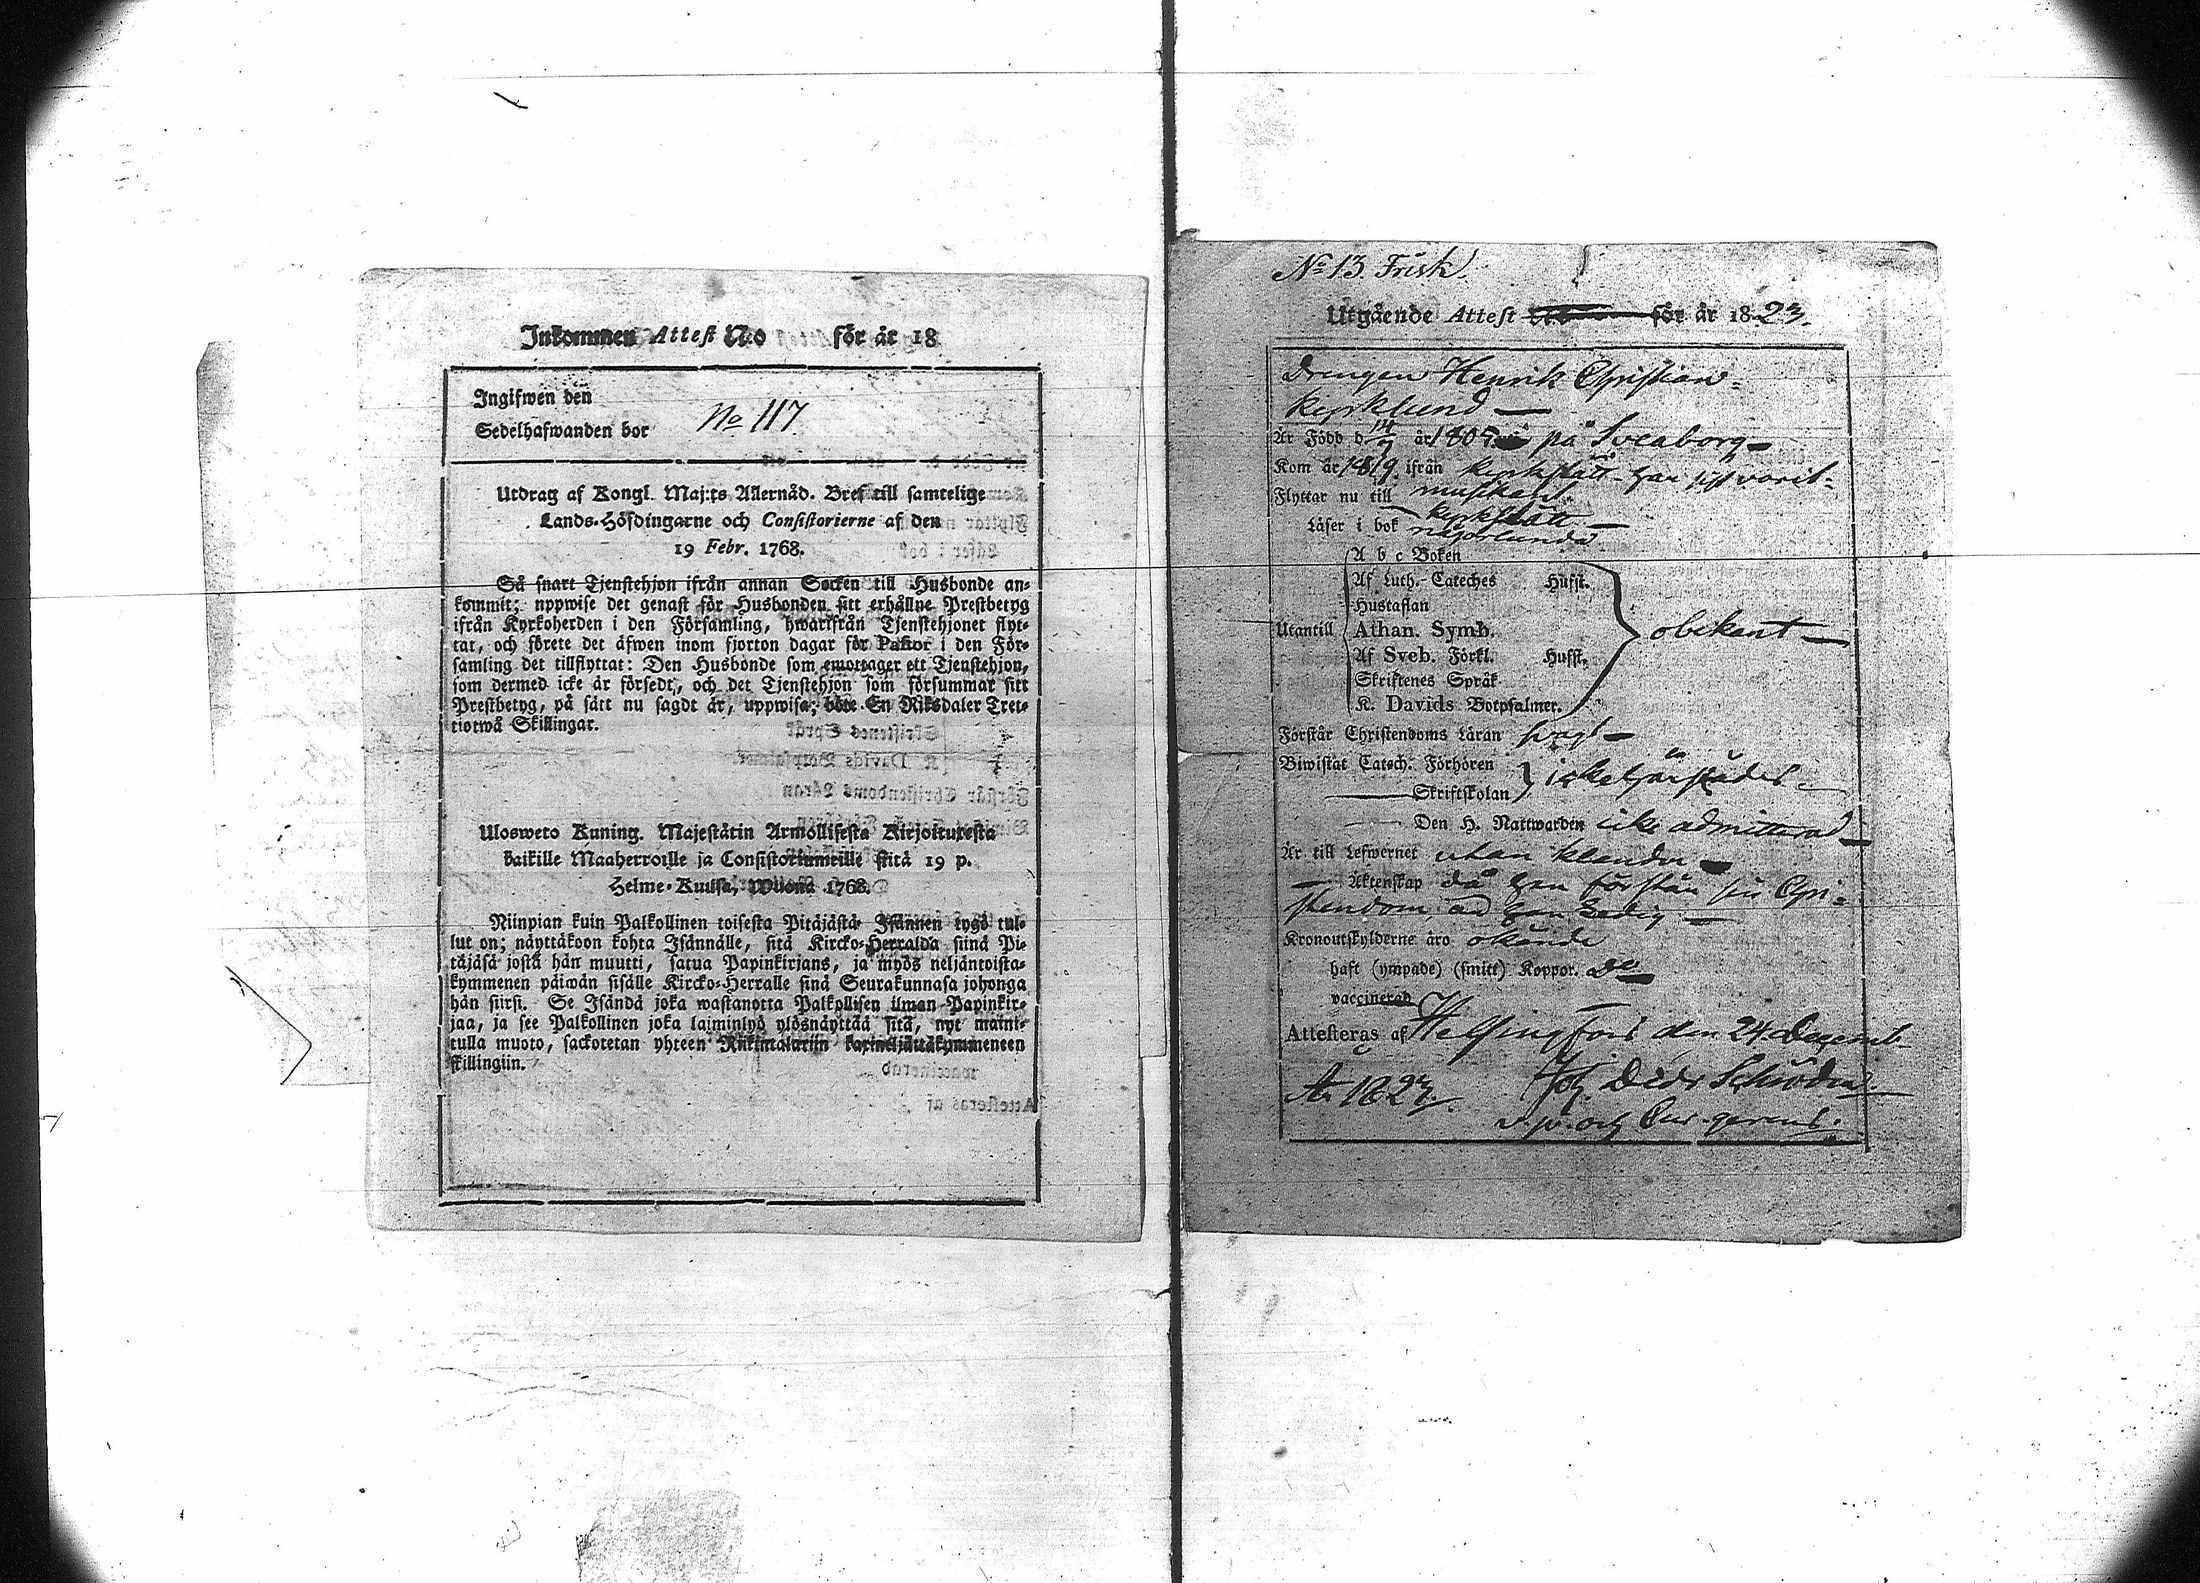 Inkommen Attest No för år 18
Ingifwen den
Sedelhafwanden bor
No 117
Utdrag af Kongl. Maj:ts Allernåd. Bref till samtelige
Lands-Höfdingarne och Consistorierne af den
19 Febr. 1768.
Så snart Tjenstehjon ifrån annan Socken till Husbonde an-
kommit; uppwise det genast för Husbonden sitt erhållne Prestbetyg
ifrån Kyrkoherden i den Församling, hwarifrån Tjenstehjonet flyt-
tat, och förete det äfwen inom fjorton dagar för Pastor i den För-
samling det tillflyttat: Den Husbonde som emottager ett Tjenstehjon,
som dermed icke är försedt, och det Tjenstehjon som försummar sitt
Prestbetyg, på sätt nu sagdt är, uppwisa; böte En Riksdaler Tret-
tiotwå Skillingar.
Ulosweto Kuning. Majestätin Armollisesta Kirjoituxesta
kaikille Maaherroille ja Consistoriumeille siitä 19 p.
Helme-Kuusa, Wuona 1768.
Niinpian kuin Palkollinen toisesta Pitäjästä Isännen tygö tul-
lut on; näyttäkoon kohta Isännälle, sitä Kircko-Herralda siinä Pi-
täjäsä josta hän muutti, satua Papinkirjans, ja myös neljäntoista-
kymmenen päiwän sisälle Kircko-Herralle sinä Seurakunnasa johonga
hän siirsi. Se Isändä joka wastanotta Palkollisen ilman Papinkir-
jaa, ja see Palkollinen joka laiminlyö ylösnäyttää sitä, nyt maini-
tulla muoto, sackotetan yhteen Riikintaleriin kaxineljättäkymmeneen
skillingiin.
No 13. Frisk
Utgående Attest för år 1823.
Drengen Henrik Christian
Kyrklund
Är Född d 14/7 år 1805 på Sveaborg
Kom år 1819 ifrån Kyrkslätt - har sist varit
Flyttar nu till musikant
Kyrkslätt
Läser i bok någorlunda
A b c Boken
Af Luth. Cateches Husst.
Hustaflan
Utantill Athan. Symb. obekant
Af Sveb. Förkl. Husst.
Skriftenes Språk
K. Davids Botpsalmer.
Förstår Christendoms Läran svagt
Biwistat Catech. Förhören
Skriftskolan icke härstädes
Den H. Nattwarden icke admitterad
Är till Lefwernet utan klander
Äktenskap då han förstår sin Chri-
stendom, är han Ledig
Kronoutskylderne äro okände
haft (ympade) (smitt) Koppor. do
vaccinerad
Attesteras af Helsingfors den 24 Decemb.
År 1823. Joh. Schröder
v. p. och Cur. gerens.